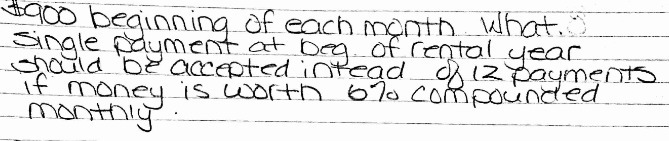 $900 beginning of each month. What.
single payment at beg. of rental year
should be accepted intead of 12 payments
if money is worth 6% compounded
monthly.